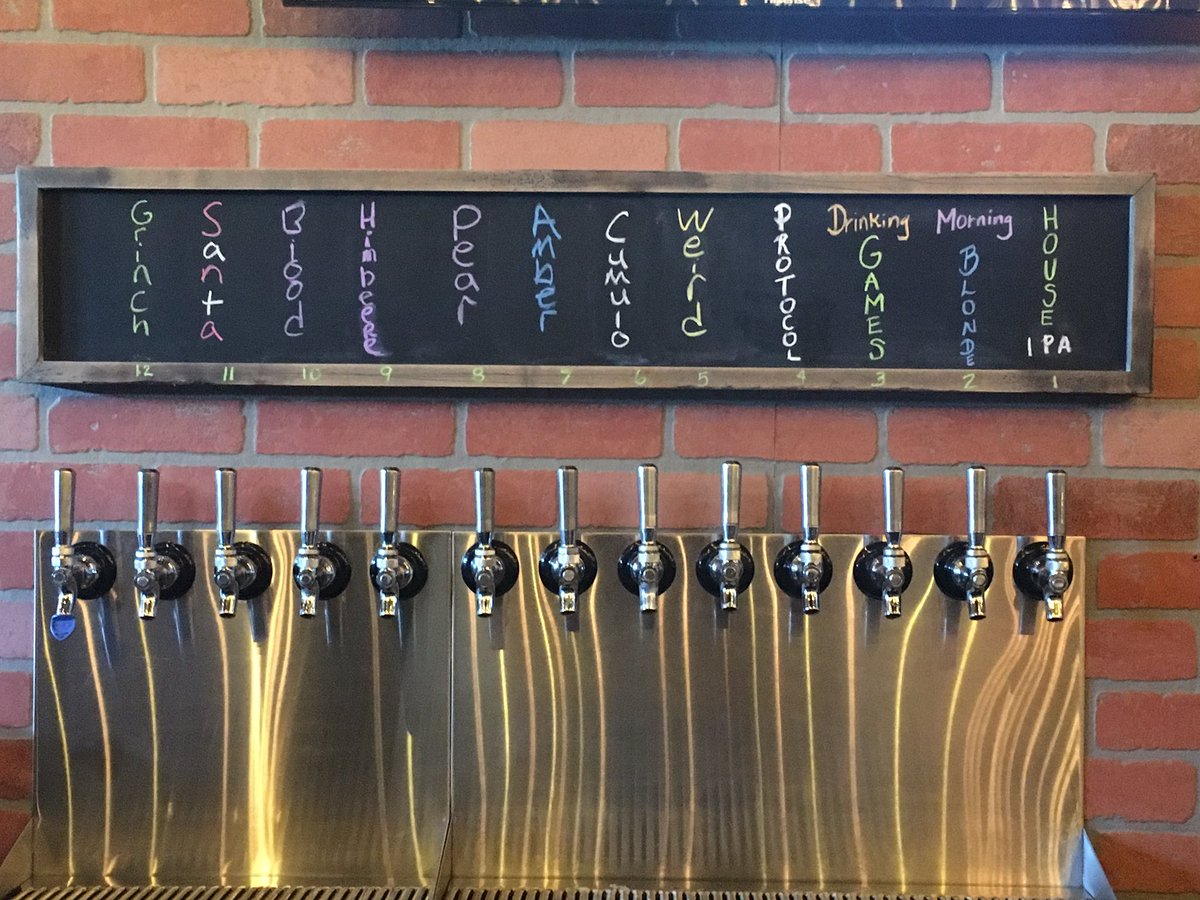 Grinch
Santa
Blood
Himbeeee
Pear
Amber
Cumulo
Weird
PROTOCOL
Drinking
GAMES
Morning
BLONDE
HOUSE
IPA
12 11 10 9 8 7 6 5 4 3 2 1